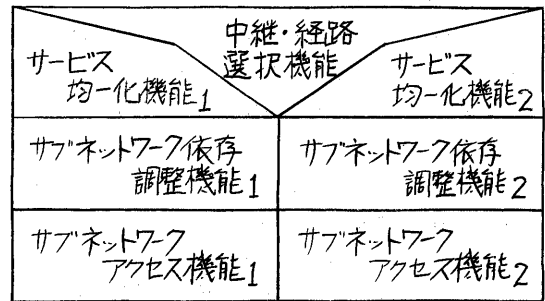 中継・経路
選択機能
サービス
均一化機能1
サービス
均一化機能2
サブネットワーク依存
調整機能1
サブネットワーク依存
調整機能2
サブネットワーク
アクセス機能1
サブネットワーク
アクセス機能2